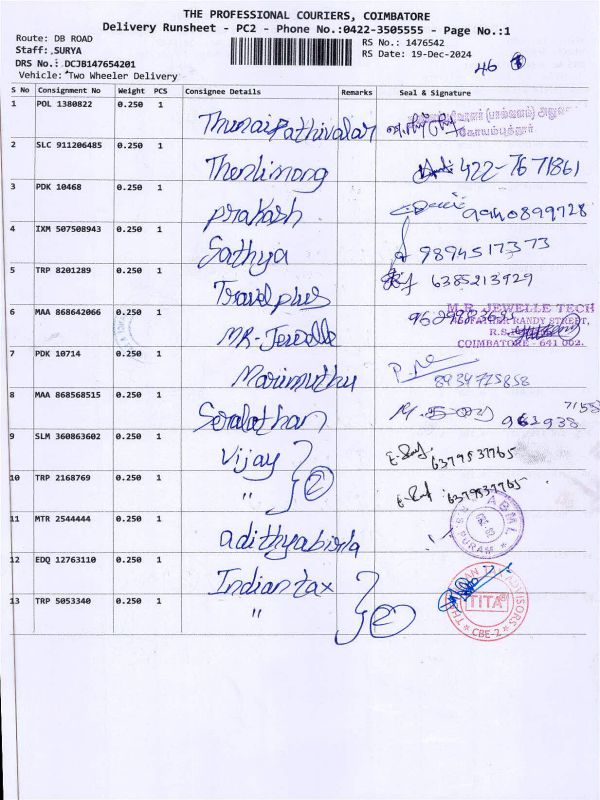 THE PROFESSIONAL COURIERS, COIMBATORE
Delivery Runsheet - PC2 - Phone No.:0422-3505555 - Page No.:1
Route: DB ROAD
Staff: SURYA
RS No.: 1476542
RS Date: 19-Dec-2024
DRS No.: DCJB147654201
Vehicle: Two Wheeler Delivery
46
S No Consignment No Weight PCS Consignee Details Remarks Seal & Signature
1 POL 1380822 0.250 1 Thunai Pathivalar
கோயம்புத்தூர்
2 SLC 911206485 0.250 1 Thenlimong 422-7671861
3 PDK 10468 0.250 1 prakash 9940899728
4 IXM 507508943 0.250 1 Sathya 9894517373
5 TRP 8201289 0.250 1 Travel plus 6385213929
6 MAA 868642066 0.250 1 MR-Jewelle
M.R. JEWELLE TECH
STREET,
COIMBATORE - 641 002.
7 PDK 10714 0.250 1 Marimuthu 8934725858
8 MAA 868568515 0.250 1 Seralathan
9 SLM 360863602 0.250 1 Vijay 6379537765
10 TRP 2168769 0.250 1 " 2 6379537765
11 MTR 2544444 0.250 1 adithyabirla
ABML
R.S. PURAM
12 EDQ 12763110 0.250 1 Indian tax
TITA
CBE-2
13 TRP 5053340 0.250 1 " 2